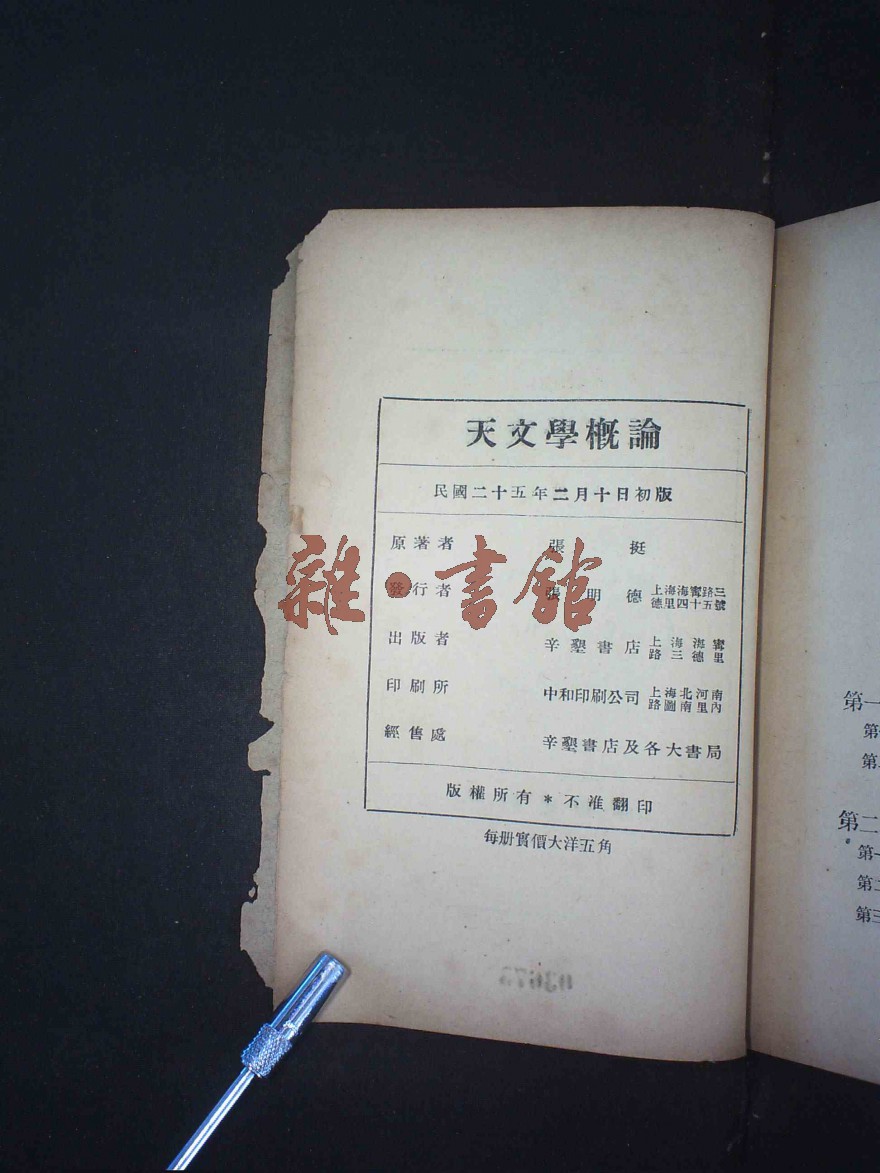 天文學概論
民國二十五年二月十日初版
原著者 張挺
發行者 張明德 上海海寗路三德里四十五號
出版者 辛墾書店 上海海寗路三德里
印刷所 中和印刷公司 上海北河南路圖南里內
經售處 辛墾書店及各大書局
版權所有*不准翻印
每册實價大洋五角
雜·書館
第一
第二
第一
第二
第三